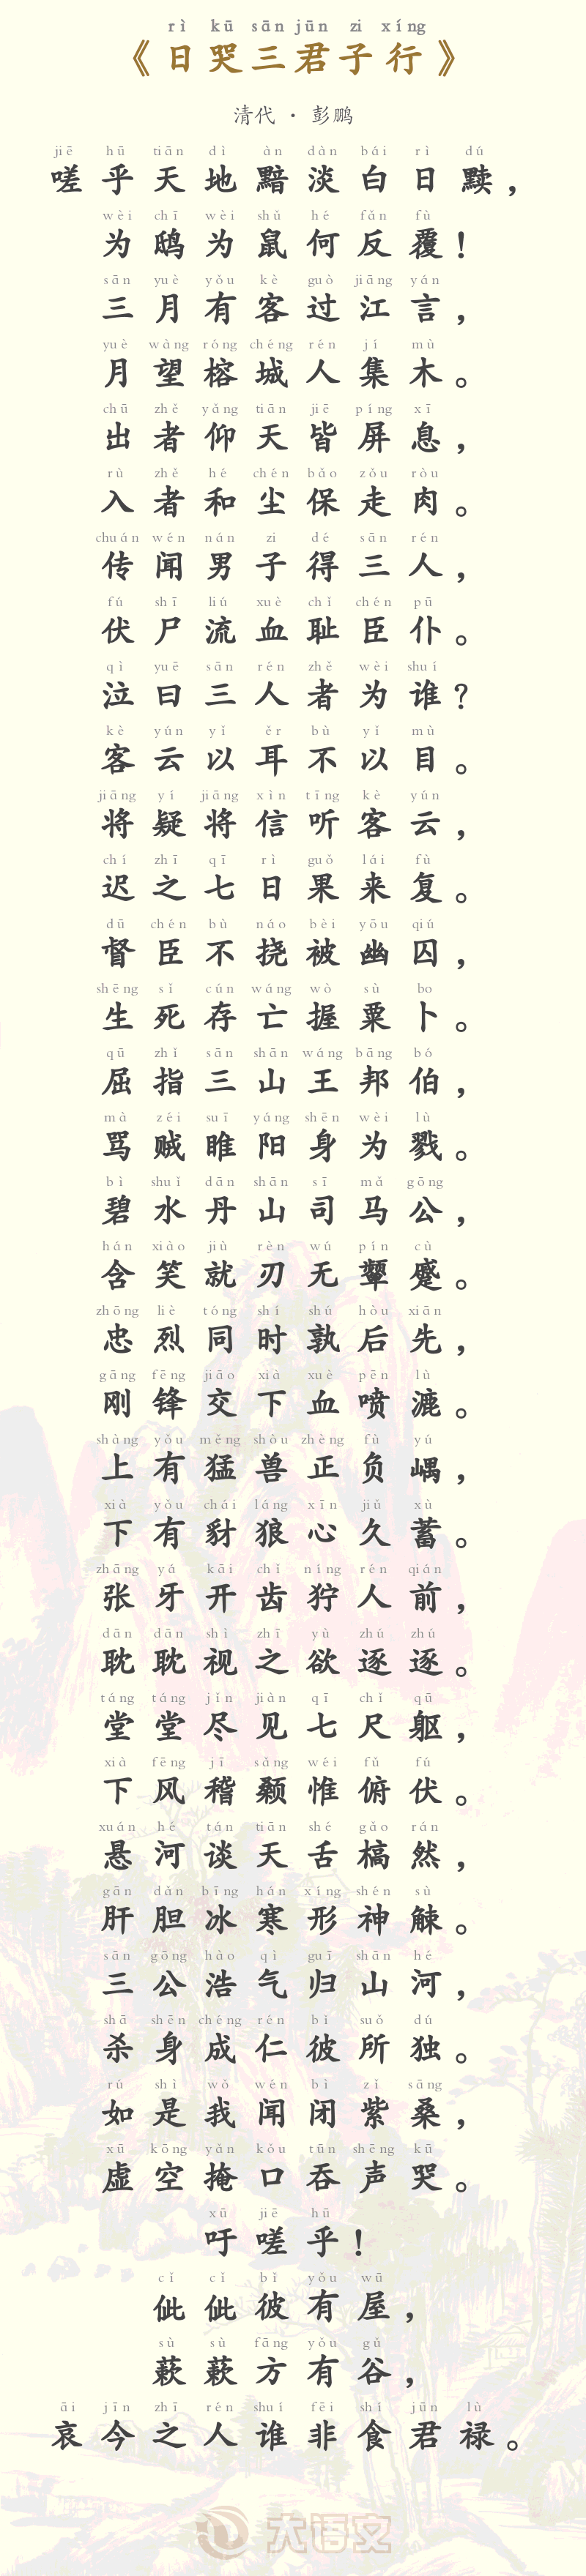 rì kū sān jūn zi xíng
《日哭三君子行》
清代 · 彭鹏
jiē hū tiān dì àn dàn bái rì dú
嗟乎天地黯淡白日黩，
wèi chī wèi shǔ hé fǎn fù
为鸱为鼠何反覆！
sān yuè yǒu kè guò jiāng yán
三月有客过江言，
yuè wàng róng chéng rén jí mù
月望榕城人集木。
chū zhě yǎng tiān jiē píng xī
出者仰天皆屏息，
rù zhě hé chén bǎo zǒu ròu
入者和尘保走肉。
chuán wén nán zi dé sān rén
传闻男子得三人，
fú shī liú xuè chǐ chén pū
伏尸流血耻臣仆。
qì yuē sān rén zhě wèi shuí
泣曰三人者为谁？
kè yún yǐ ěr bù yǐ mù
客云以耳不以目。
jiāng yí jiāng xìn tīng kè yún
将疑将信听客云，
chí zhī qī rì guǒ lái fù
迟之七日果来复。
dū chén bù náo bèi yōu qiú
督臣不挠被幽囚，
shēng sǐ cún wáng wò sù bo
生死存亡握粟卜。
qū zhǐ sān shān wáng bāng bó
屈指三山王邦伯，
mà zéi suī yáng shēn wèi lù
骂贼睢阳身为戮。
bì shuǐ dān shān sī mǎ gōng
碧水丹山司马公，
hán xiào jiù rèn wú pín cù
含笑就刃无颦蹙。
zhōng liè tóng shí shú hòu xiān
忠烈同时孰后先，
gāng fēng jiāo xià xuè pēn lù
刚锋交下血喷漉。
shàng yǒu měng shòu zhèng fù yú
上有猛兽正负嵎，
xià yǒu chái láng xīn jiǔ xù
下有豺狼心久蓄。
zhāng yá kāi chǐ níng rén qián
张牙开齿狞人前，
dān dān shì zhī yù zhú zhú
耽耽视之欲逐逐。
táng táng jǐn jiàn qī chǐ qū
堂堂尽见七尺躯，
xià fēng jī sǎng wéi fǔ fú
下风稽颡惟俯伏。
xuán hé tán tiān shé gǎo rán
悬河谈天舌槁然，
gān dǎn bīng hán xíng shén sù
肝胆冰寒形神觫。
sān gōng hào qì guī shān hé
三公浩气归山河，
shā shēn chéng rén bǐ suǒ dú
杀身成仁彼所独。
rú shì wǒ wén bì zǐ sāng
如是我闻闭紫桑，
xū kōng yǎn kǒu tūn shēng kū
虚空掩口吞声哭。
xū jiē hū
吁嗟乎！
cǐ cǐ bǐ yǒu wū
佌佌彼有屋，
sù sù fāng yǒu gǔ
蔌蔌方有谷，
āi jīn zhī rén shuí fēi shí jūn lù
哀今之人谁非食君禄。
大语文